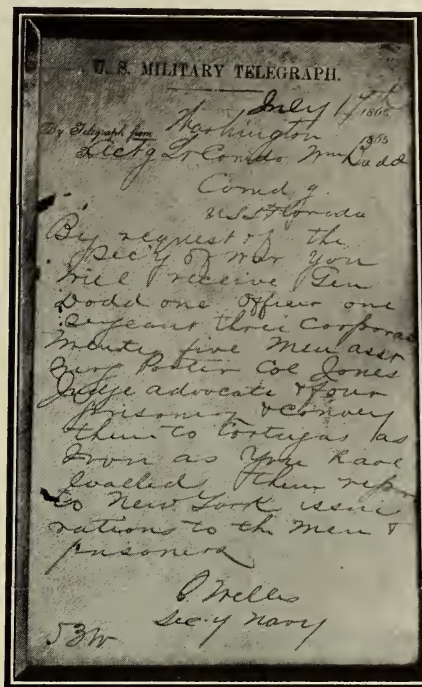 U. S. MILITARY TELEGRAPH.
July 17th 1865
By Telegraph from Washington 1865
Actg Lt Comdo Wm Budd
Comdg.
U S S Florida
By request of the
Secy of War you
will receive Gen
Dodd one officer one
three Corporal
twenty five Men asst
Surg Porter Col Jones
Judge advocate & four
prisoners & convey
them to Tortugas as
soon as you have
them repr
to New York issue
rations to the Men &
prisoners
G Welles
Secy Navy
53W